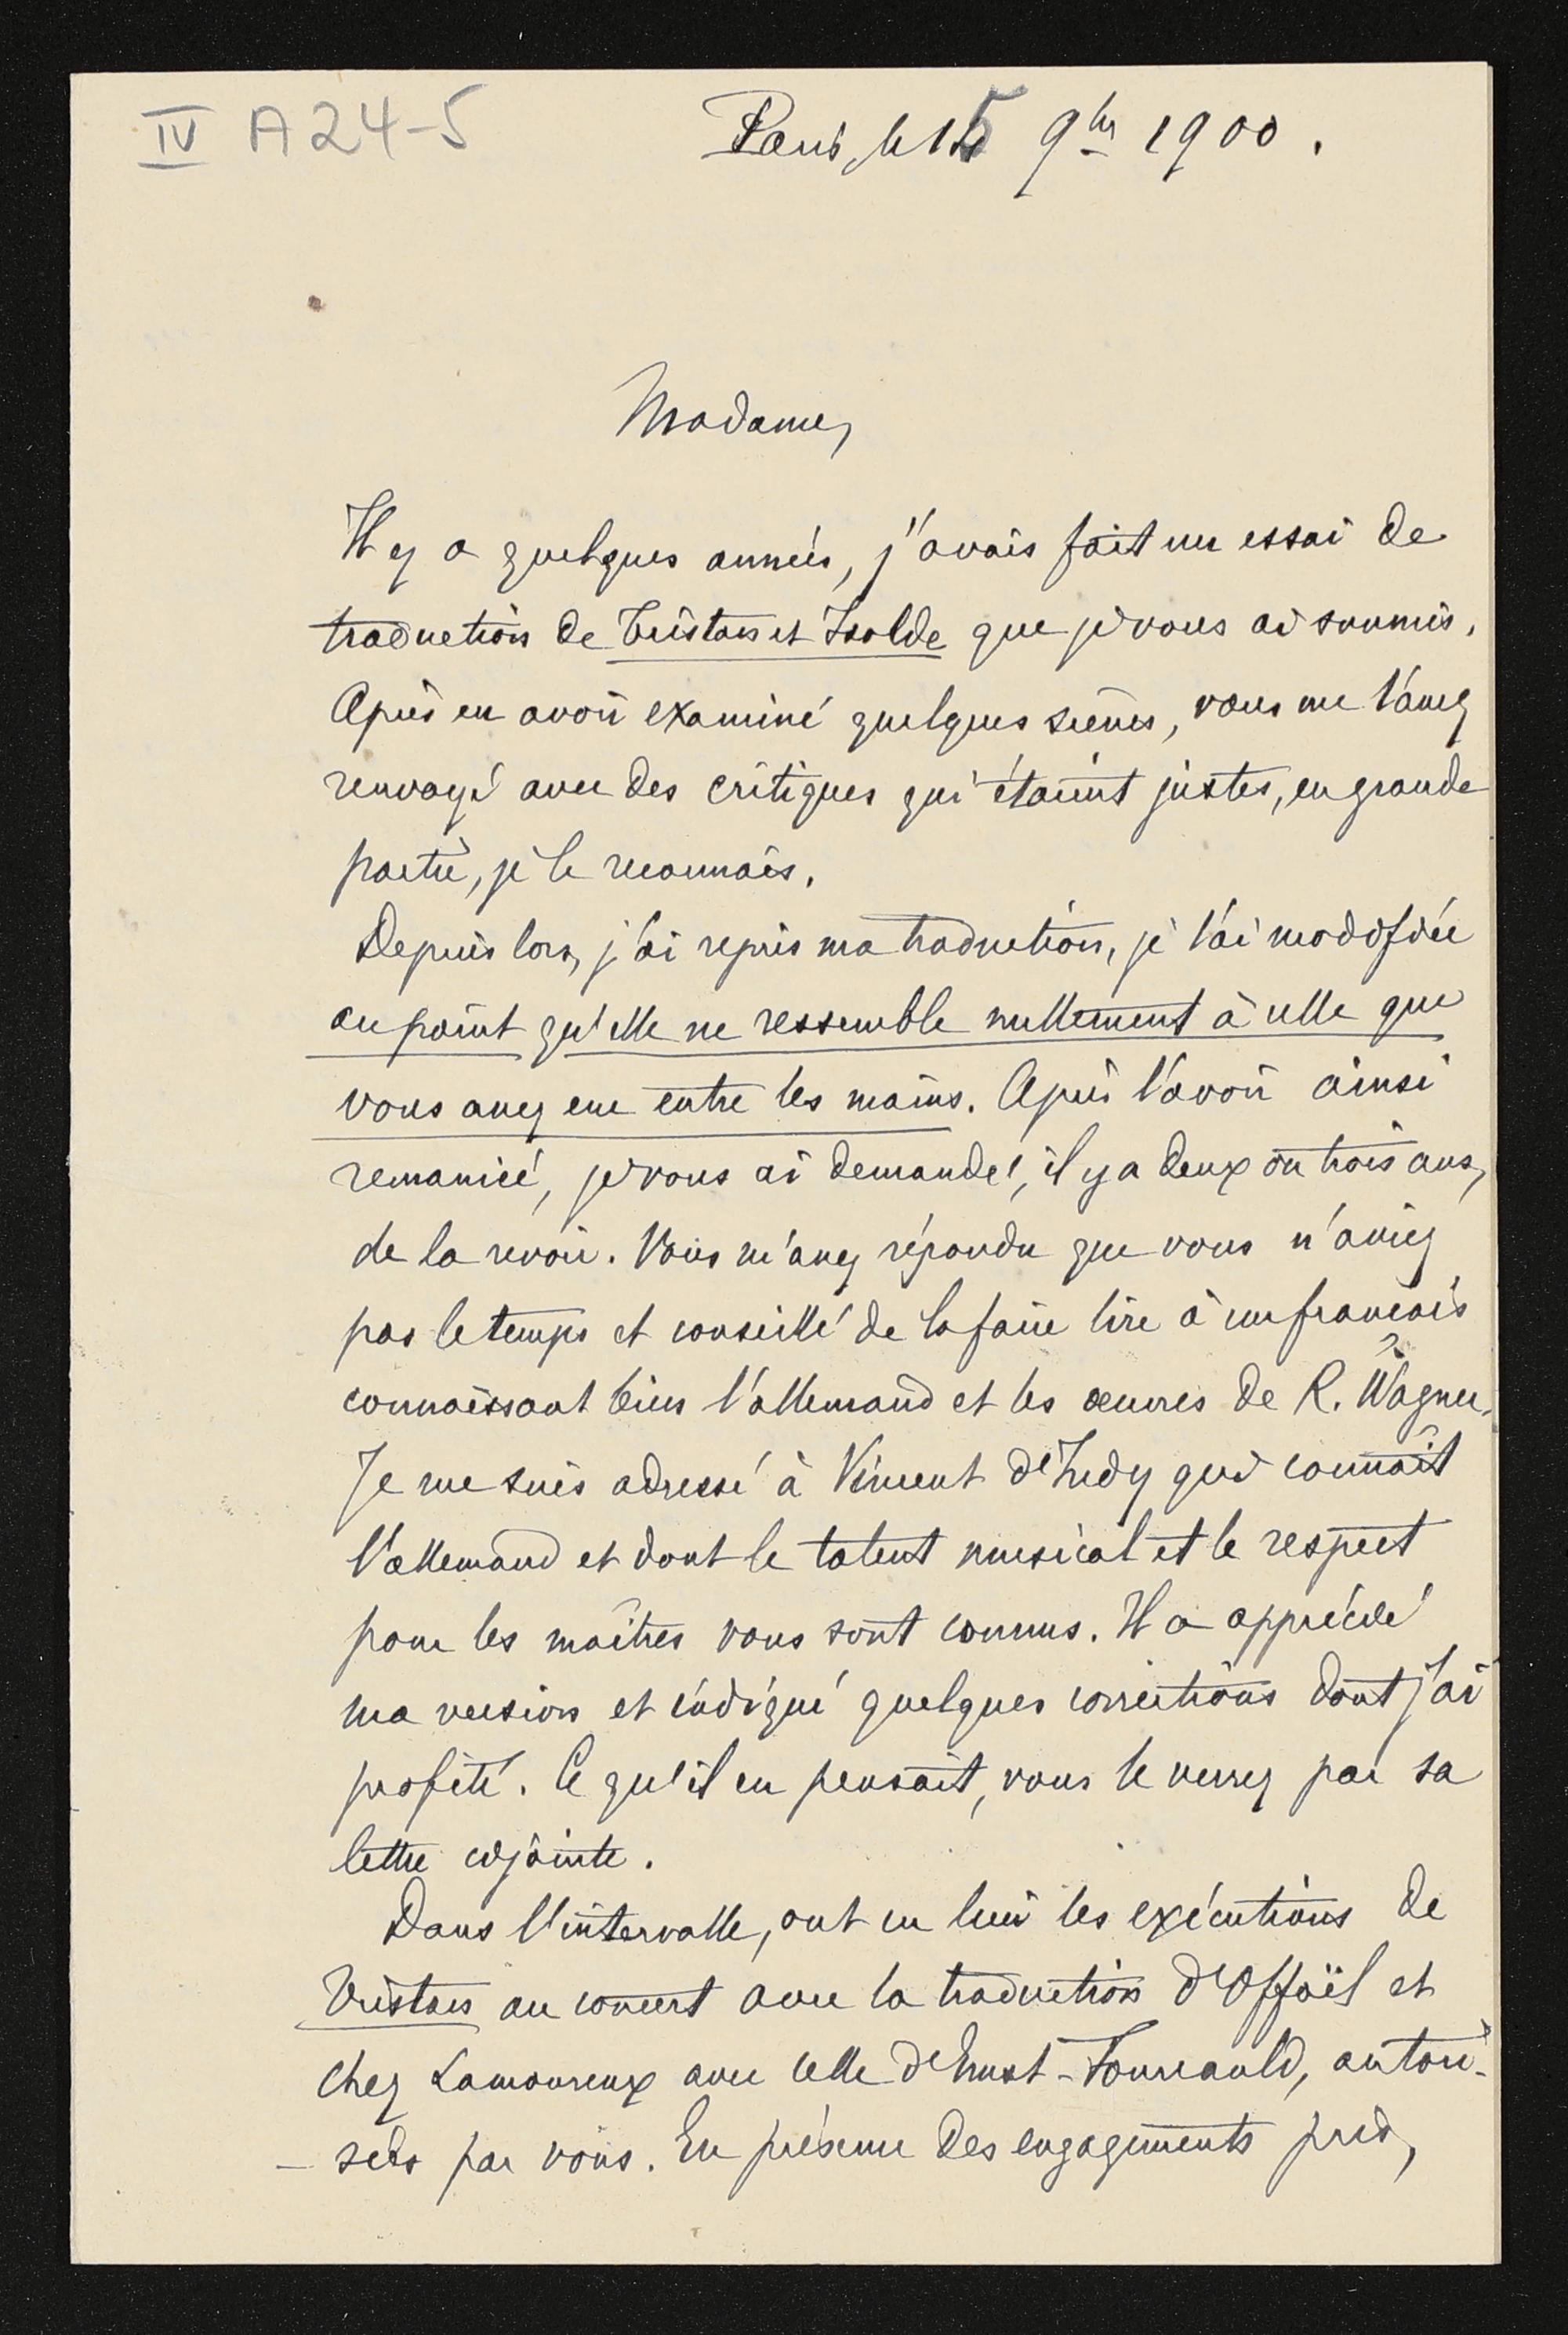 IV A 24-5
Paris, le 15 9bre 1900.
Madame,
Il y a quelques années, j'avais fait un essai de
traduction de Tristan et Isolde que je vous ai soumis.
Après en avoir examiné quelques scènes, vous me l'avez
renvoyé avec des critiques qui étaient justes, en grande
partie, je le reconnais.
Depuis lors, j'ai repris ma traduction, je l'ai modifiée
au point qu'elle ne ressemble nullement à celle que
vous avez eue entre les mains. Après l'avoir ainsi
remaniée, je vous ai demandé, il y a deux ou trois ans,
de la revoir. Vous m'avez répondu que vous n'aviez
pas le temps et conseillé de la faire lire à un français
connaissant bien l'allemand et les œuvres de R. Wagner.
Je me suis adressé à Vincent d'Indy qui connaît
l'allemand et dont le talent musical et le respect
pour les maîtres vous sont connus. Il a apprécié
ma version et indiqué quelques corrections dont j'ai
profité. Ce qu'il en pensait, vous le verrez par sa
lettre cijointe.
Dans l'intervalle, ont eu lieu les exécutions de
Tristan au concert avec la traduction d'Offoël et
chez Lamoureux avec celle d'Ernst-Fourcauld, autori-
- sées par vous. En présence des engagements pris,